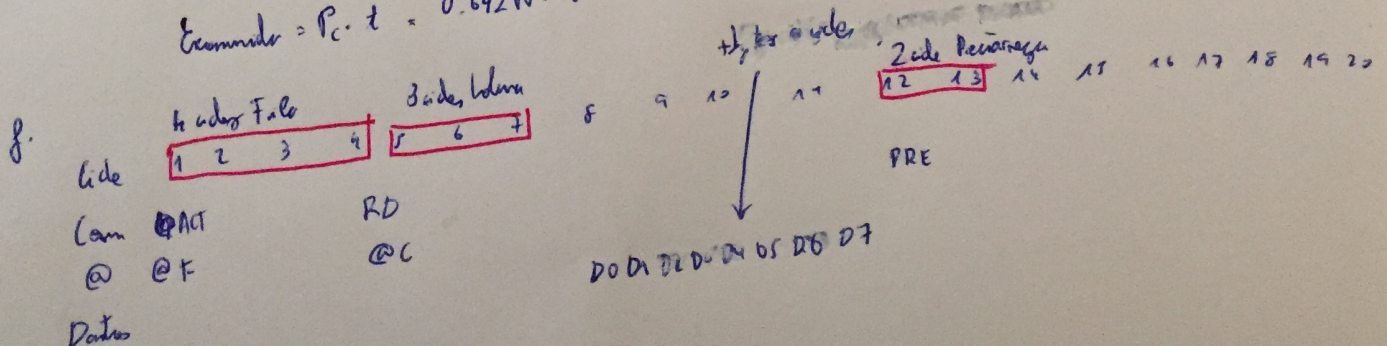 = Pc · t = 0.692W
4 ciclos Fila 3 ciclos Columna 2 ciclo Precarrega
f.
Cicle 1 2 3 4 5 6 7 8 9 10 11 12 13 14 15 16 17 18 19 20
Com ACT RD PRE
@ @F @C
D0 D1 D2 D3 D4 D5 D6 D7
Datos